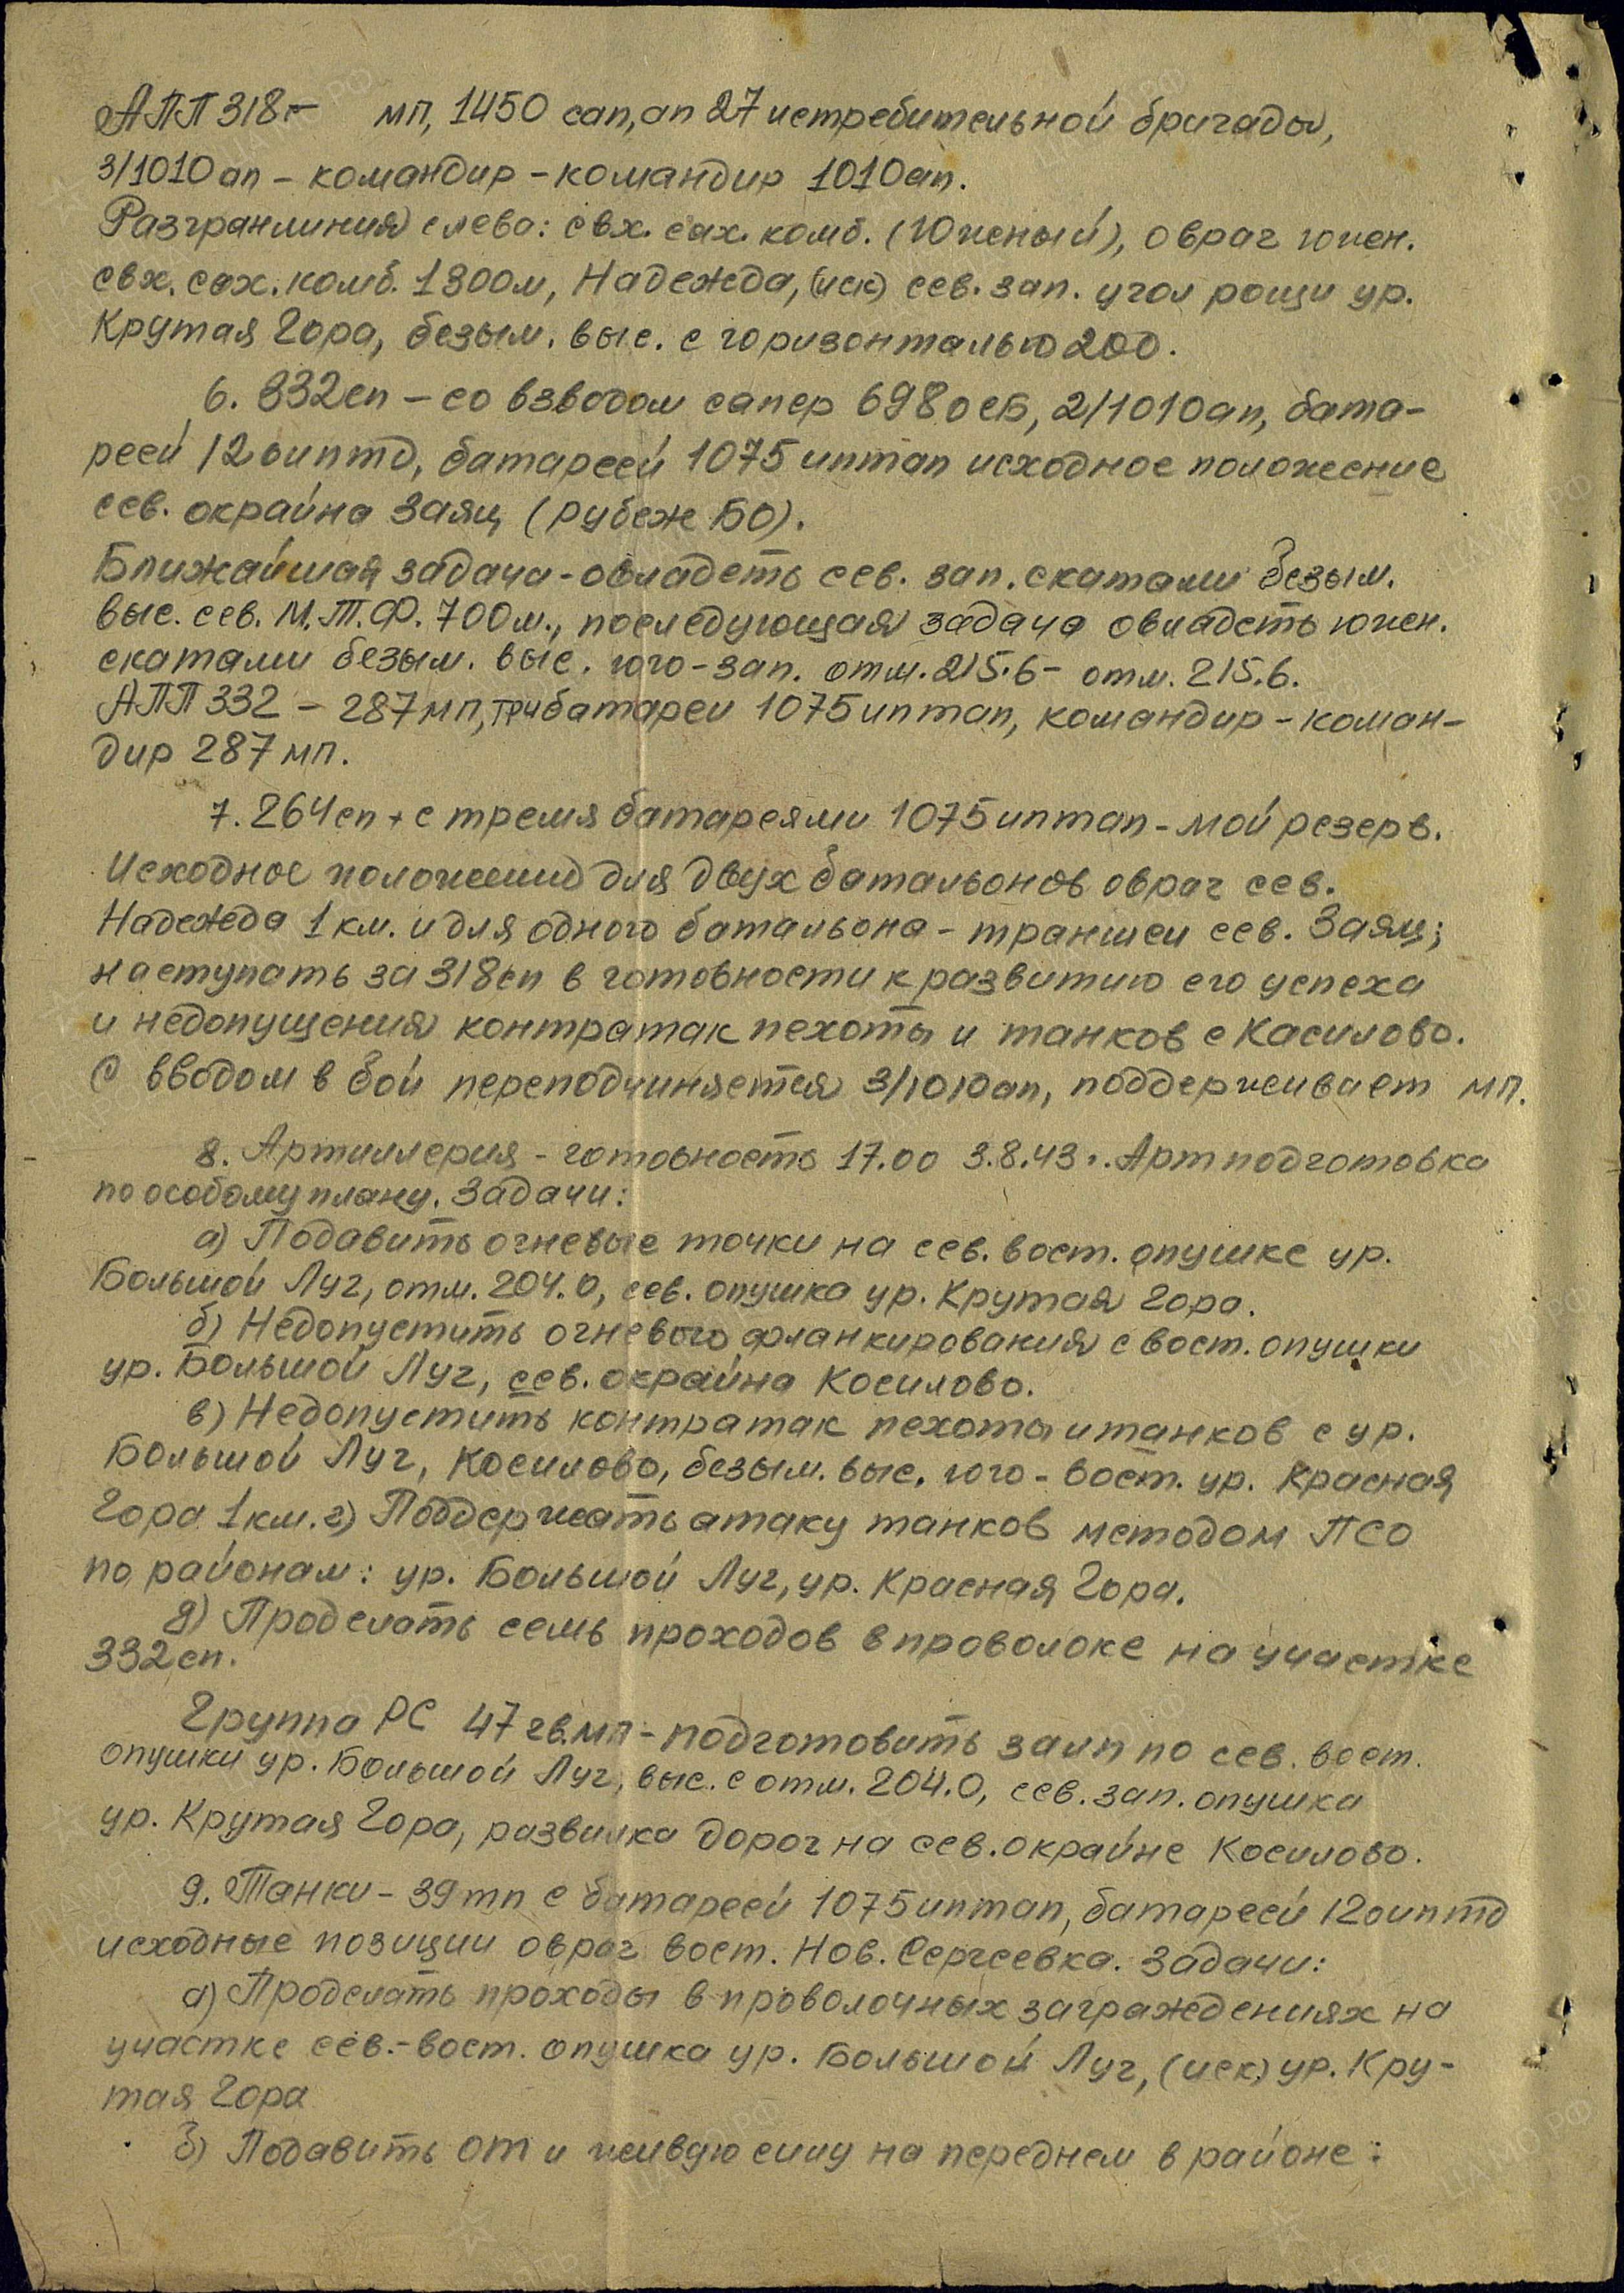 АПП 318 – мп, 1450 сап, ап 27 истребительной бригады,
3/1010 ап – командир – командир 1010 ап.
Разгранлиния слева: свх. сах. комб. (Южный), овраг южн.
свх. сах. комб. 1300м, Надежда, (иск) сев. зап. угол рощи ур.
Крутая Гора, безым. выс. с горизонталью 200.
6. 332 сп – со взводом сапер 698 осб, 2/1010 ап, бата-
реей 12 оиптд, батареей 1075 иптап исходное положение
сев. окраина Заяц (рубеж БО).
Ближайшая задача – овладеть сев. зап. скатами безым.
выс. сев. М.Т.Ф. 700м., последующая задача овладеть южн.
скатами безым. выс. юго-зап. отм. 215.6 – отм. 215.6.
АПП 332 – 287 мп, три батареи 1075 иптап, командир – коман-
дир 287 мп.
7. 264 сп с тремя батареями 1075 иптап – мой резерв.
Исходное положение для двух батальонов овраг сев.
Надежда 1 км. и для одного батальона – траншеи сев. Заяц;
наступать за 318 сп в готовности к развитию его успеха
и недопущения контратак пехоты и танков с Касилово.
С вводом в бой переподчиняется 3/1010 ап, поддерживает мп.
8. Артиллерия – готовность 17.00 3.8.43. Артподготовка
по особому плану. Задачи:
а) Подавить огневые точки на сев. вост. опушке ур.
Большой Луг, отм. 204.0, сев. опушка ур. Крутая Гора.
б) Недопустить огневого фланкирования с вост. опушки
ур. Большой Луг, сев. окраина Косилово.
в) Недопустить контратак пехоты и танков с ур.
Большой Луг, Косилово, безым. выс. юго-вост. ур. Красная
Гора 1 км. г) Поддержать атаку танков методом ПСО
по районам: ур. Большой Луг, ур. Красная Гора.
д) Проделать семь проходов в проволоке на участке
332 сп.
Группа РС 47 гв. мп – подготовить залп по сев. вост.
опушки ур. Большой Луг, выс. с отм. 204.0, сев. зап. опушка
ур. Крутая Гора, развилка дорог на сев. окраине Косилово.
9. Танки – 39 тп с батареей 1075 иптап, батареей 12 оиптд
исходные позиции овраг вост. Нов. Сергеевка. Задачи:
а) Проделать проходы в проволочных заграждениях на
участке сев.-вост. опушка ур. Большой Луг, (иск) ур. Кру-
тая Гора
б) Подавить ОТ и живую силу на переднем в районе: